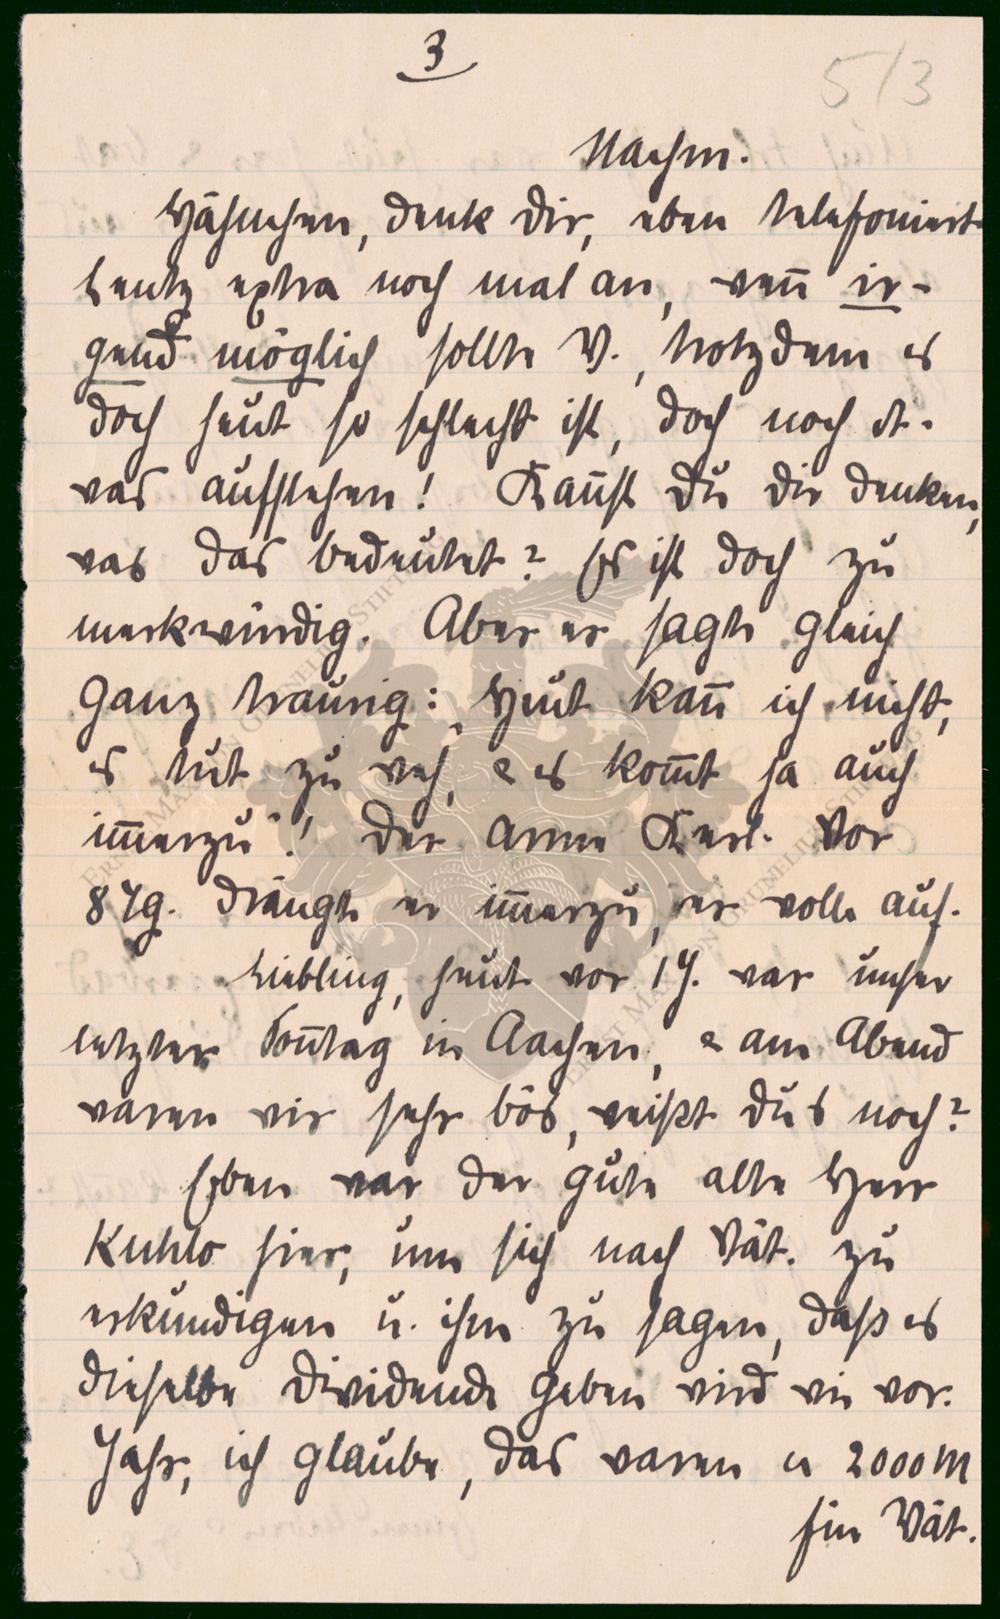 3
5/3
Nachm.
Hähnchen, denk Dir, eben telefoniert
Lentz extra noch mal an, wen̄ ir-
gend möglich sollte V., trotzdem es
doch heut so schlecht ist, doch noch et-
was aufstehen! Kan̄st Du Dir denken,
was das bedeutet? Es ist doch zu
merkwürdig. Aber er sagte gleich
ganz traurig: „Heut kan̄ ich nicht,
es tut zu weh, & es kom̄t ja auch
im̄erzu"! Der arme Kerl. Vor
8 Tg. drängte er im̄erzu, er wolle auf.
Liebling, heut vor 1 J. war unser
letzter Son̄tag in Aachen, & am Abend
waren wir sehr bös, weißt Du's noch?
Eben war der gute alte Herr
Kuhlo hier, um sich nach Vät. zu
erkundigen u. ihm zu sagen, daß es
dieselbe Dividende geben wird wie vor.
Jahr, ich glaube, das waren 2000 M
für Vät.
ERNST MAX VON GRUNELIUS-STIFTUNG
ERNST MAX VON GRUNELIUS-STIFTUNG